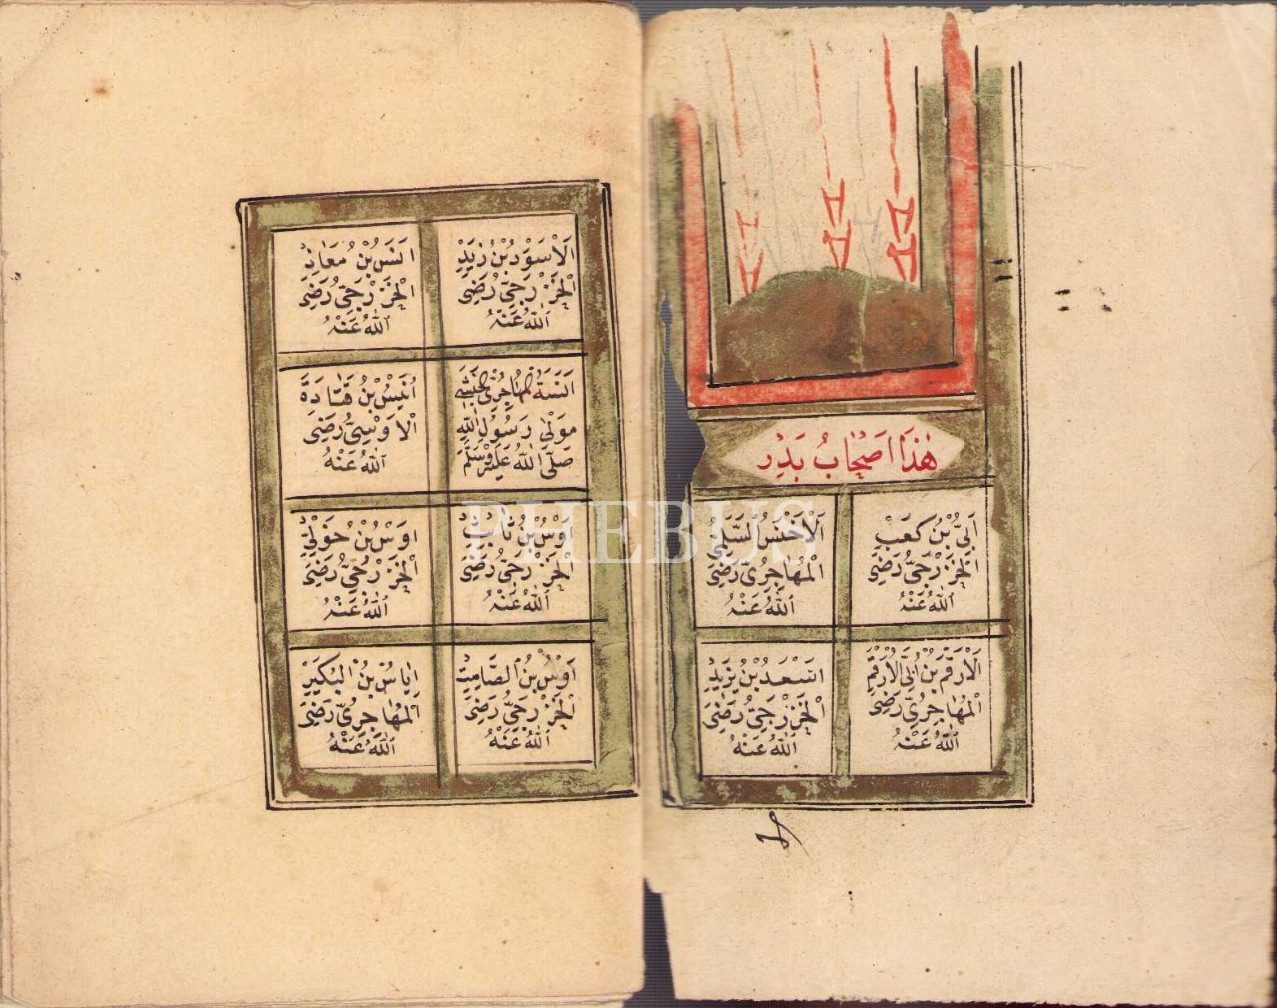 هٰذَا اَصْحَابُ بَدْرٍ
اُبَيُّ بْنُ كَعَبِ
الْخَزْرَجِيُّ رَضِىَ
اللّٰهُ عَنْهُ
اَلْاَخْنَسُ السُّلَمِيُّ
الْمُهَاجِرِيُّ رَضِىَ
اللّٰهُ عَنْهُ
اَلْاَرْقَمُ بْنُ اَبِى الْاَرْقَمِ
الْمُهَاجِرِيُّ رَضِىَ
اللّٰهُ عَنْهُ
اَسْعَدُ بْنُ يَزِيدِ
الْخَزْرَجِيُّ رَضِىَ
اللّٰهُ عَنْهُ
اَلْاَسْوَدُ بْنُ زَيْدِ
الْخَزْرَجِيُّ رَضِىَ
اللّٰهُ عَنْهُ
اَنَسُ بْنُ مُعَاذِ
الْخَزْرَجِيُّ رَضِىَ
اللّٰهُ عَنْهُ
اَنَسَةُ الْمُهَاجِرِيُّ الْحَبَشِيُّ
مَوْلٰى رَسُولِ اللّٰهِ
صَلَّى اللّٰهُ عَلَيْهِ وَسَلَّمَ
اُنَيْسُ بْنُ قَتَادَةَ
الْاَوْسِيُّ رَضِىَ
اللّٰهُ عَنْهُ
اَوْسُ بْنُ ثَابِتِ
الْخَزْرَجِيُّ رَضِىَ
اللّٰهُ عَنْهُ
اَوْسُ بْنُ خَوْلِيِّ
الْخَزْرَجِيُّ رَضِىَ
اللّٰهُ عَنْهُ
اَوْسُ بْنُ الصَّامِتِ
الْخَزْرَجِيُّ رَضِىَ
اللّٰهُ عَنْهُ
اِيَاسُ بْنُ الْبُكَيْرِ
الْمُهَاجِرِيُّ رَضِىَ
اللّٰهُ عَنْهُ
PHEBUS